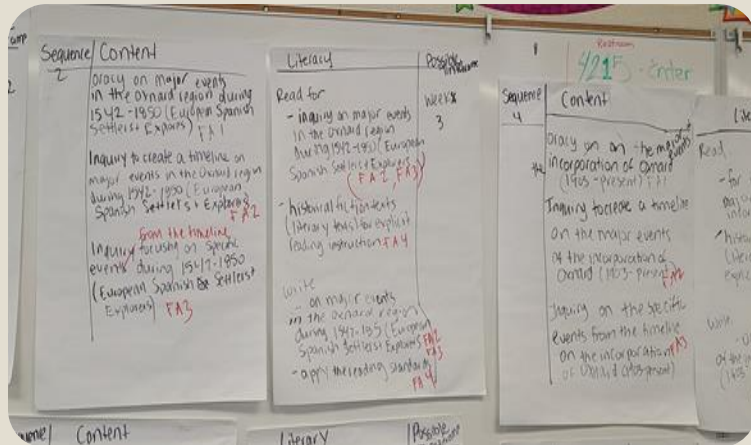 Sequence Content
2
oracy on major events
in the Oxnard region during
1542-1850 (European Spanish
Settlers + Explores) FA1
Inquiry to create a timeline on
major events in the Oxnard region
during 1542-1850 (European
Spanish Settlers + Explorers)
FA2
from the timeline
Inquiry focusing on specific
events during 1542-1850
(European Spanish & Settlers +
Explorers) FA3
Literacy
Possible
Read for
- inquiry on major events
in the Oxnard region
during 1542-1850 (European
Spanish Settlers + Explorers)
(FA2, FA3)
- historical fiction texts
(literary texts) for explicit
reading instruction FA4
Write
- on major events
in the Oxnard region
during 1542-185 (European
Spanish Settlers + Explorers FA2
FA3
- apply the reading standards
FA4
Weeks
3
Restroom
4215 - Enter
Sequence Content
4
oracy on on the major events
the incorporation of Oxnard
(1903-present) FA1
Inquiry to create a timeline
on the major events
of the incorporation of
Oxnard (1903-present) FA2
Inquiry on the specific
events from the timeline
on the incorporation FA3
of Oxnard (1903-present)
Read
- for
Write
Content
Literary
Possible